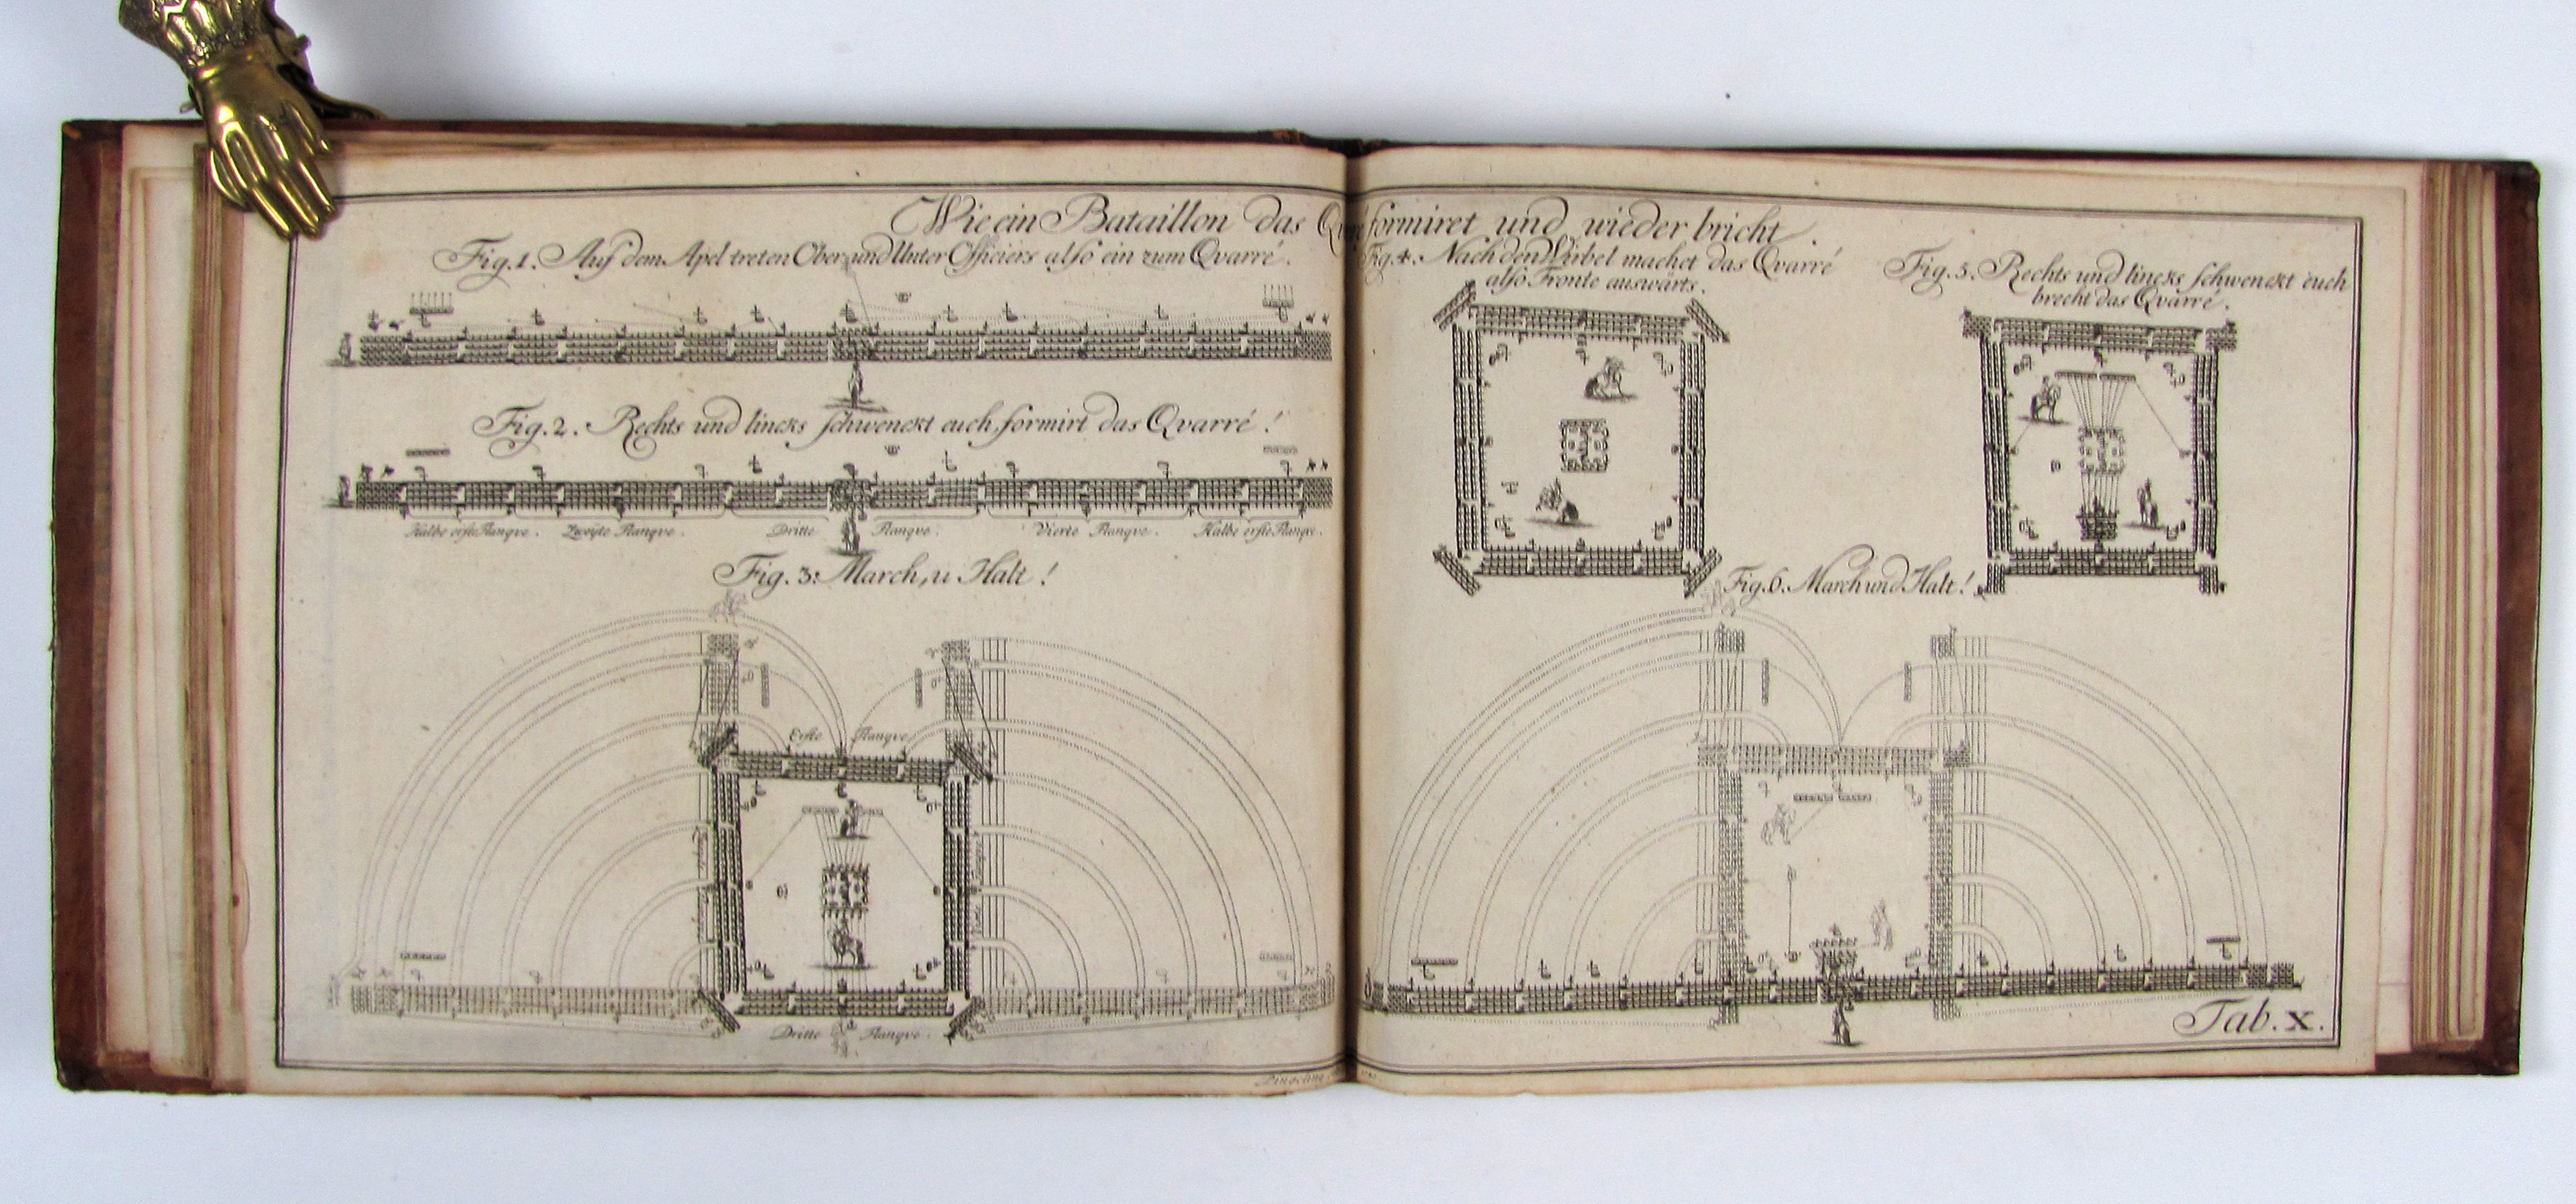 Wie ein Bataillon das Qvarré formiret und wieder bricht.
Fig. 1. Auf dem Apel treten Ober und Unter Officiers also ein zum Qvarré.
Fig. 2. Rechts und lincks schwenckt euch, formirt das Qvarré!
Halbe erste Flanqve. Zweyte Flanqve. Dritte Flanqve. Vierte Flanqve. Halbe erste Flanqve.
Fig. 3: March, u Halt!
Erste Flanqve
Dritte Flanqve.
Fig. 4. Nach den Wirbel machet das Qvarré
also Fronte auswärts.
Fig. 5. Rechts und lincks schwenckt euch
brecht das Qvarré.
Fig. 6. March und Halt!
Tab. X.